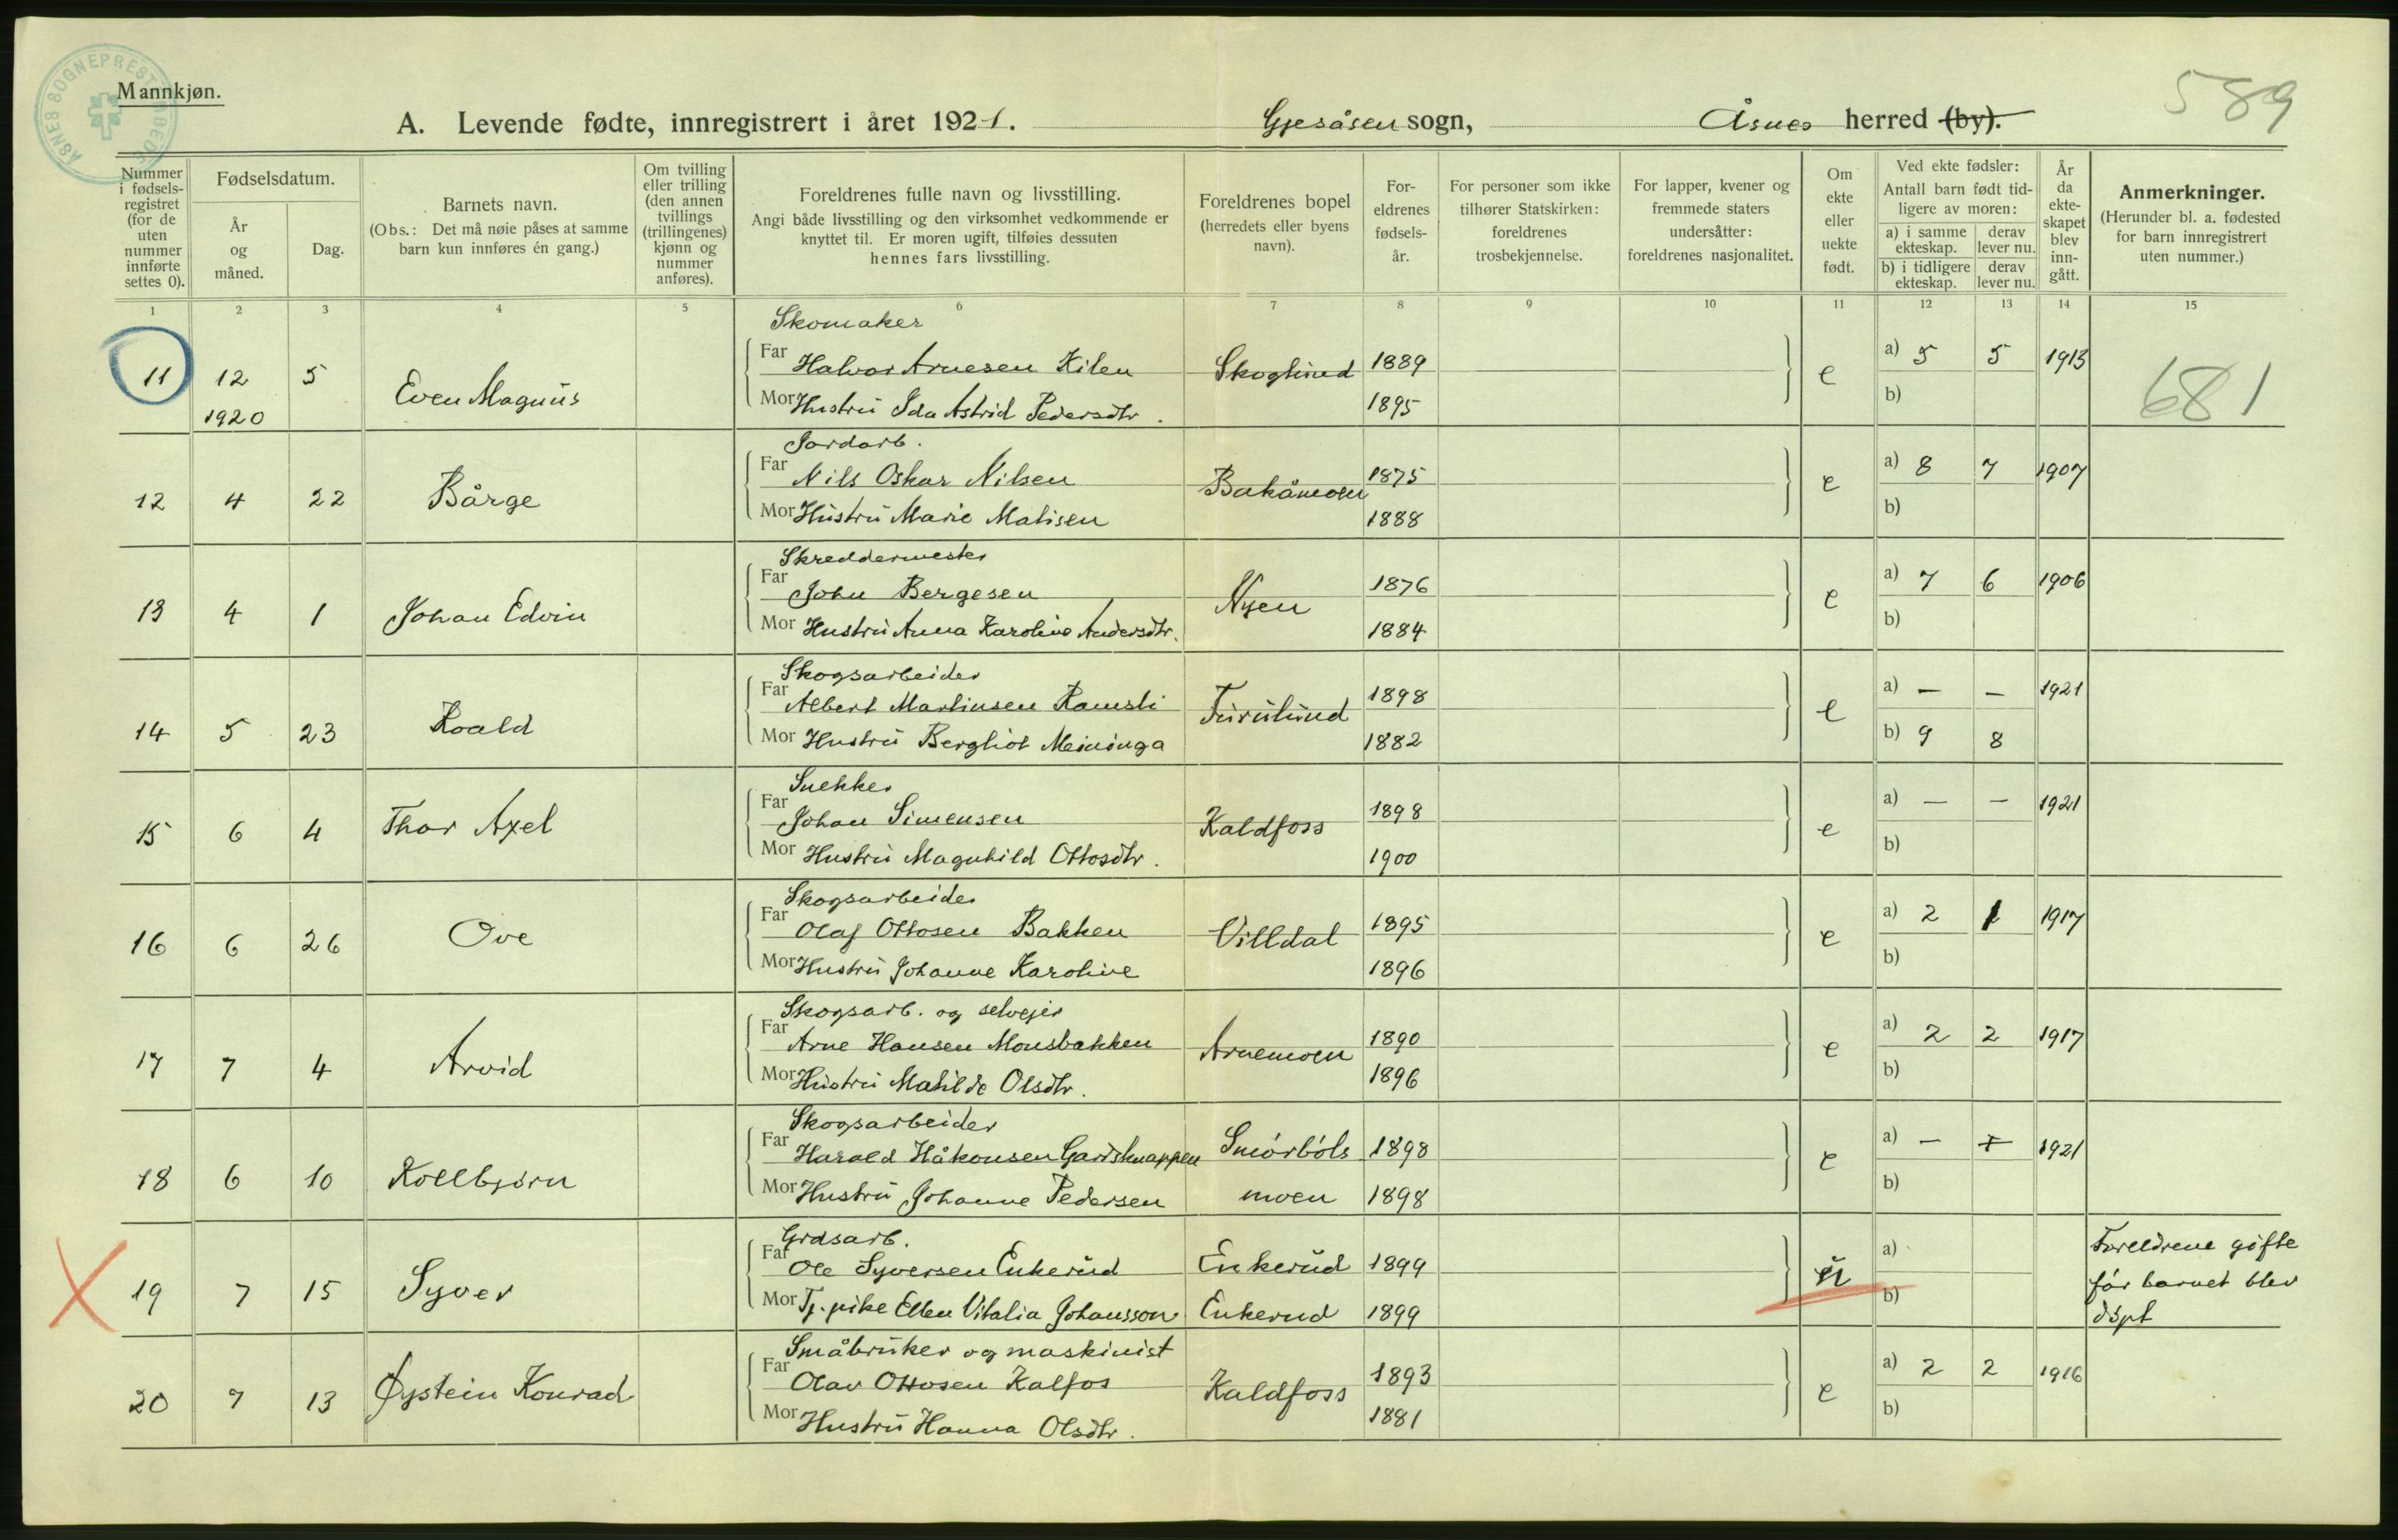 ÅSNES SOGNEPRESTEMBEDE
Mannkjøn.
589
A. Levende fødte, innregistrert i året 1921. Gjesåsen sogn, Åsnes herred (by).
Nummer i fødselsregistret (for de uten nummer innførte settes 0).
Fødselsdatum.
År og måned.
Dag.
Barnets navn.
(Obs.: Det må nøie påses at samme barn kun innføres én gang.)
Om tvilling eller trilling (den annen tvillings (trillingenes) kjønn og nummer anføres).
Foreldrenes fulle navn og livsstilling.
Angi både livsstilling og den virksomhet vedkommende er knyttet til. Er moren ugift, tilføies dessuten hennes fars livsstilling.
Foreldrenes bopel (herredets eller byens navn).
Foreldrenes fødselsår.
For personer som ikke tilhører Statskirken: foreldrenes trosbekjennelse.
For lapper, kvener og fremmede staters undersåtter: foreldrenes nasjonalitet.
Om ekte eller uekte født.
Ved ekte fødsler:
Antall barn født tidligere av moren:
a) i samme ekteskap. derav lever nu.
b) i tidligere ekteskap. derav lever nu.
År da ekteskapet blev inngått.
Anmerkninger.
(Herunder bl. a. fødested for barn innregistrert uten nummer.)
1 2 3 4 5 6 7 8 9 10 11 12 13 14 15
Skomaker
11 12 1920 5 Even Magnus Far Halvor Arnesen Kilen Skoglund 1889 e a) 5 5 1913 681
Mor Hustru Ida Astrid Pedersdtr. 1895 b)
Jordarb.
12 4 22 Bårge Far Nils Oskar Nilsen Bakåmoen 1875 e a) 8 7 1907
Mor Hustru Marie Matisen 1888 b)
Skreddermester
13 4 1 Johan Edvin Far John Bergesen Nyen 1876 e a) 7 6 1906
Mor Hustru Anna Karoline Andersdtr. 1884 b)
Skogsarbeider
14 5 23 Roald Far Albert Martinsen Ramsli Furulund 1898 e a) — — 1921
Mor Hustru Bergliot Meininga 1882 b) 9 8
Snekker
15 6 4 Thor Axel Far Johan Simensen Kaldfoss 1898 e a) — — 1921
Mor Hustru Magnhild Ottosdtr. 1900 b)
Skogsarbeider
16 6 26 Ove Far Olaf Ottosen Bakken Villdal 1895 e a) 2 1 1917
Mor Hustru Johanne Karoline 1896 b)
Skogsarb. og selvejer
17 7 4 Arvid Far Arne Hansen Monsbakken Arnemoen 1890 e a) 2 2 1917
Mor Hustru Matilde Olsdtr. 1896 b)
Skogsarbeider
18 6 10 Kollbjørn Far Harald Håkonsen Gardsknappen Smörbóls 1898 e a) — 1921
Mor Hustru Johanne Pedersen moen 1898 b)
Grdsarb.
19 7 15 Syver Far Ole Syversen Enkerud Enkerud 1899 u a) Foreldrene gifte
Mor Tj. pike Ellen Vitalia Johansson Enkerud 1899 b) før barnet blev
døpt
Småbruker og maskinist
20 7 13 Øystein Konrad Far Olav Ottosen Kalfos Kaldfoss 1893 e a) 2 2 1916
Mor Hustru Hanna Olsdtr. 1881 b)